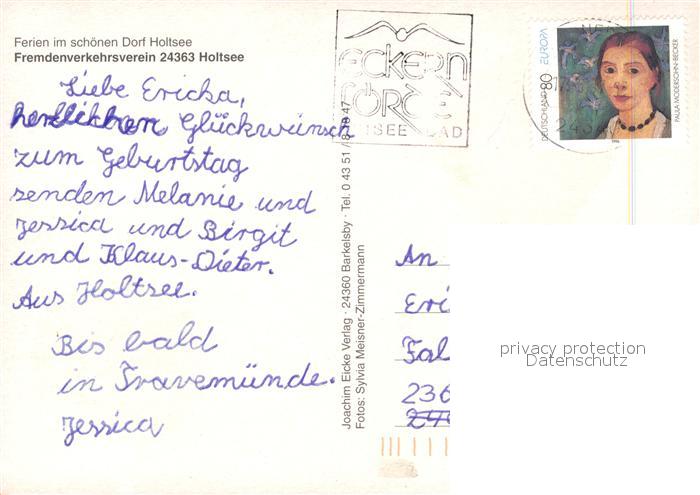 Ferien im schönen Dorf Holtsee
Fremdenverkehrsverein 24363 Holtsee
Liebe Ericka,
herzlichen Glückwunsch
zum Geburtstag
senden Melanie und
Jessica und Birgit
und Klaus-Dieter.
Aus Holtsee.
Bis bald
in Travemünde.
Jessica
Joachim Eicke Verlag · 24360 Barkelsby · Tel. 0 43 51 / 8 18 47
Fotos: Sylvia Meisner-Zimmermann
ECKERN
FÖRDE
OSTSEEBAD
DEUTSCHLAND 80 EUROPA
PAULA MODERSOHN-BECKER
1996
An
Eri
Fal
236
privacy protection
Datenschutz